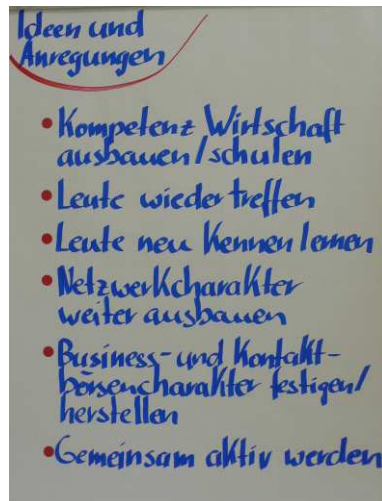 Ideen und
Anregungen
• Kompetenz Wirtschaft
ausbauen/schulen
• Leute wieder treffen
• Leute neu kennen lernen
• Netzwerkcharakter
weiter ausbauen
• Business- und Kontakt-
börsencharakter festigen/
herstellen
• Gemeinsam aktiv werden